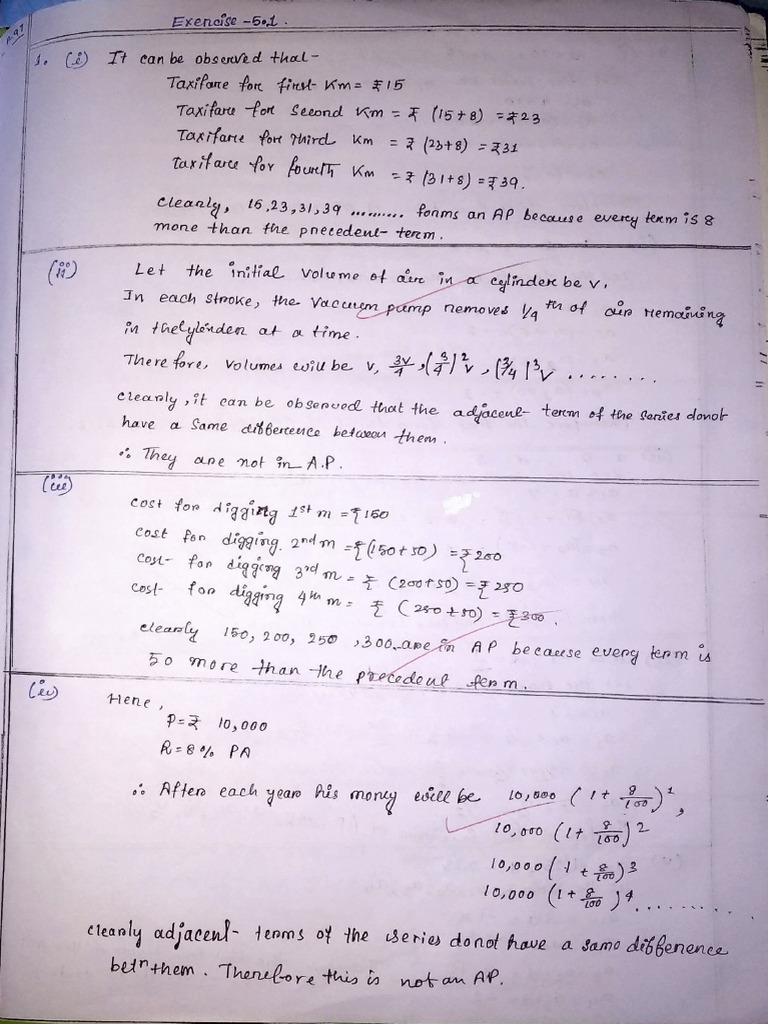 Exercise -5.1.
1. (i) It can be observed that-
Taxifare for first Km = ₹15
Taxifare for Second Km = ₹ (15+8) = ₹23
Taxifare for Third Km = ₹ (23+8) = ₹31
Taxifare for fourth Km = ₹ (31+8) = ₹39.
clearly, 15,23,31,39 ......... forms an AP because every term is 8
more than the precedent term.
(ii) Let the initial volume of air in a cylinder be v.
In each stroke, the vacuum pump removes 1/4 th of air remaining
in the cylinder at a time.
Therefore, volumes will be v, 3v/4, (3/4)²v, (3/4)³v ........
clearly, it can be observed that the adjacent term of the series donot
have a same difference between them.
∴ They are not in A.P.
(iii)
cost for digging 1st m = ₹150
cost for digging. 2nd m = ₹(150+50) = ₹200
cost- for digging 3rd m = ₹ (200+50) = ₹250
cost- for digging 4th m = ₹ (250+50) = ₹300.
clearly 150, 200, 250, 300 are in AP because every term is
50 more than the precedent term.
(iv) Here,
P = ₹ 10,000
R = 8% PA
∴ After each year his money will be 10,000 (1 + 8/100)¹,
10,000 (1 + 8/100)²
10,000 (1 + 8/100)³
10,000 (1 + 8/100)⁴.........
clearly adjacent- terms of the series donot have a same difference
betⁿ them. Therefore this is not an AP.